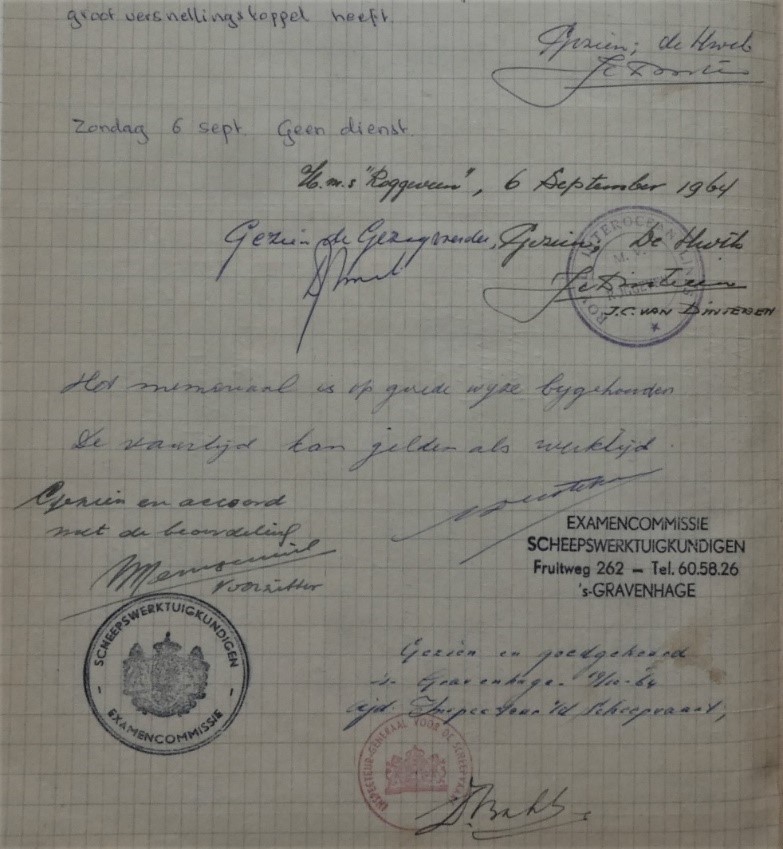 groot versnellingskoppel heeft.
Gezien; de Hwtk
Zondag 6 sept. Geen dienst.
H.m.s "Roggeveen", 6 September 1964
Gezien de Gezagvoerder, Gezien; De Hwtk
ROYAL INTEROCEAN LINES
M.V.
ROGGEVEEN
J.C. VAN DINTEREN
Het memoriaal is op goede wijze bijgehouden
De vaartijd kan gelden als werktijd.
Gezien en accoord
met de beoordeling
Voorzitter
EXAMENCOMMISSIE
SCHEEPSWERKTUIGKUNDIGEN
Fruitweg 262 — Tel. 60.58.26
's-GRAVENHAGE
SCHEEPSWERKTUIGKUNDIGEN
EXAMENCOMMISSIE
Gezien en goedgekeurd
's- Gravenhage
Inspecteur v/d Scheepvaart,
INSPECTEUR-GENERAAL VOOR DE SCHEEPVAART